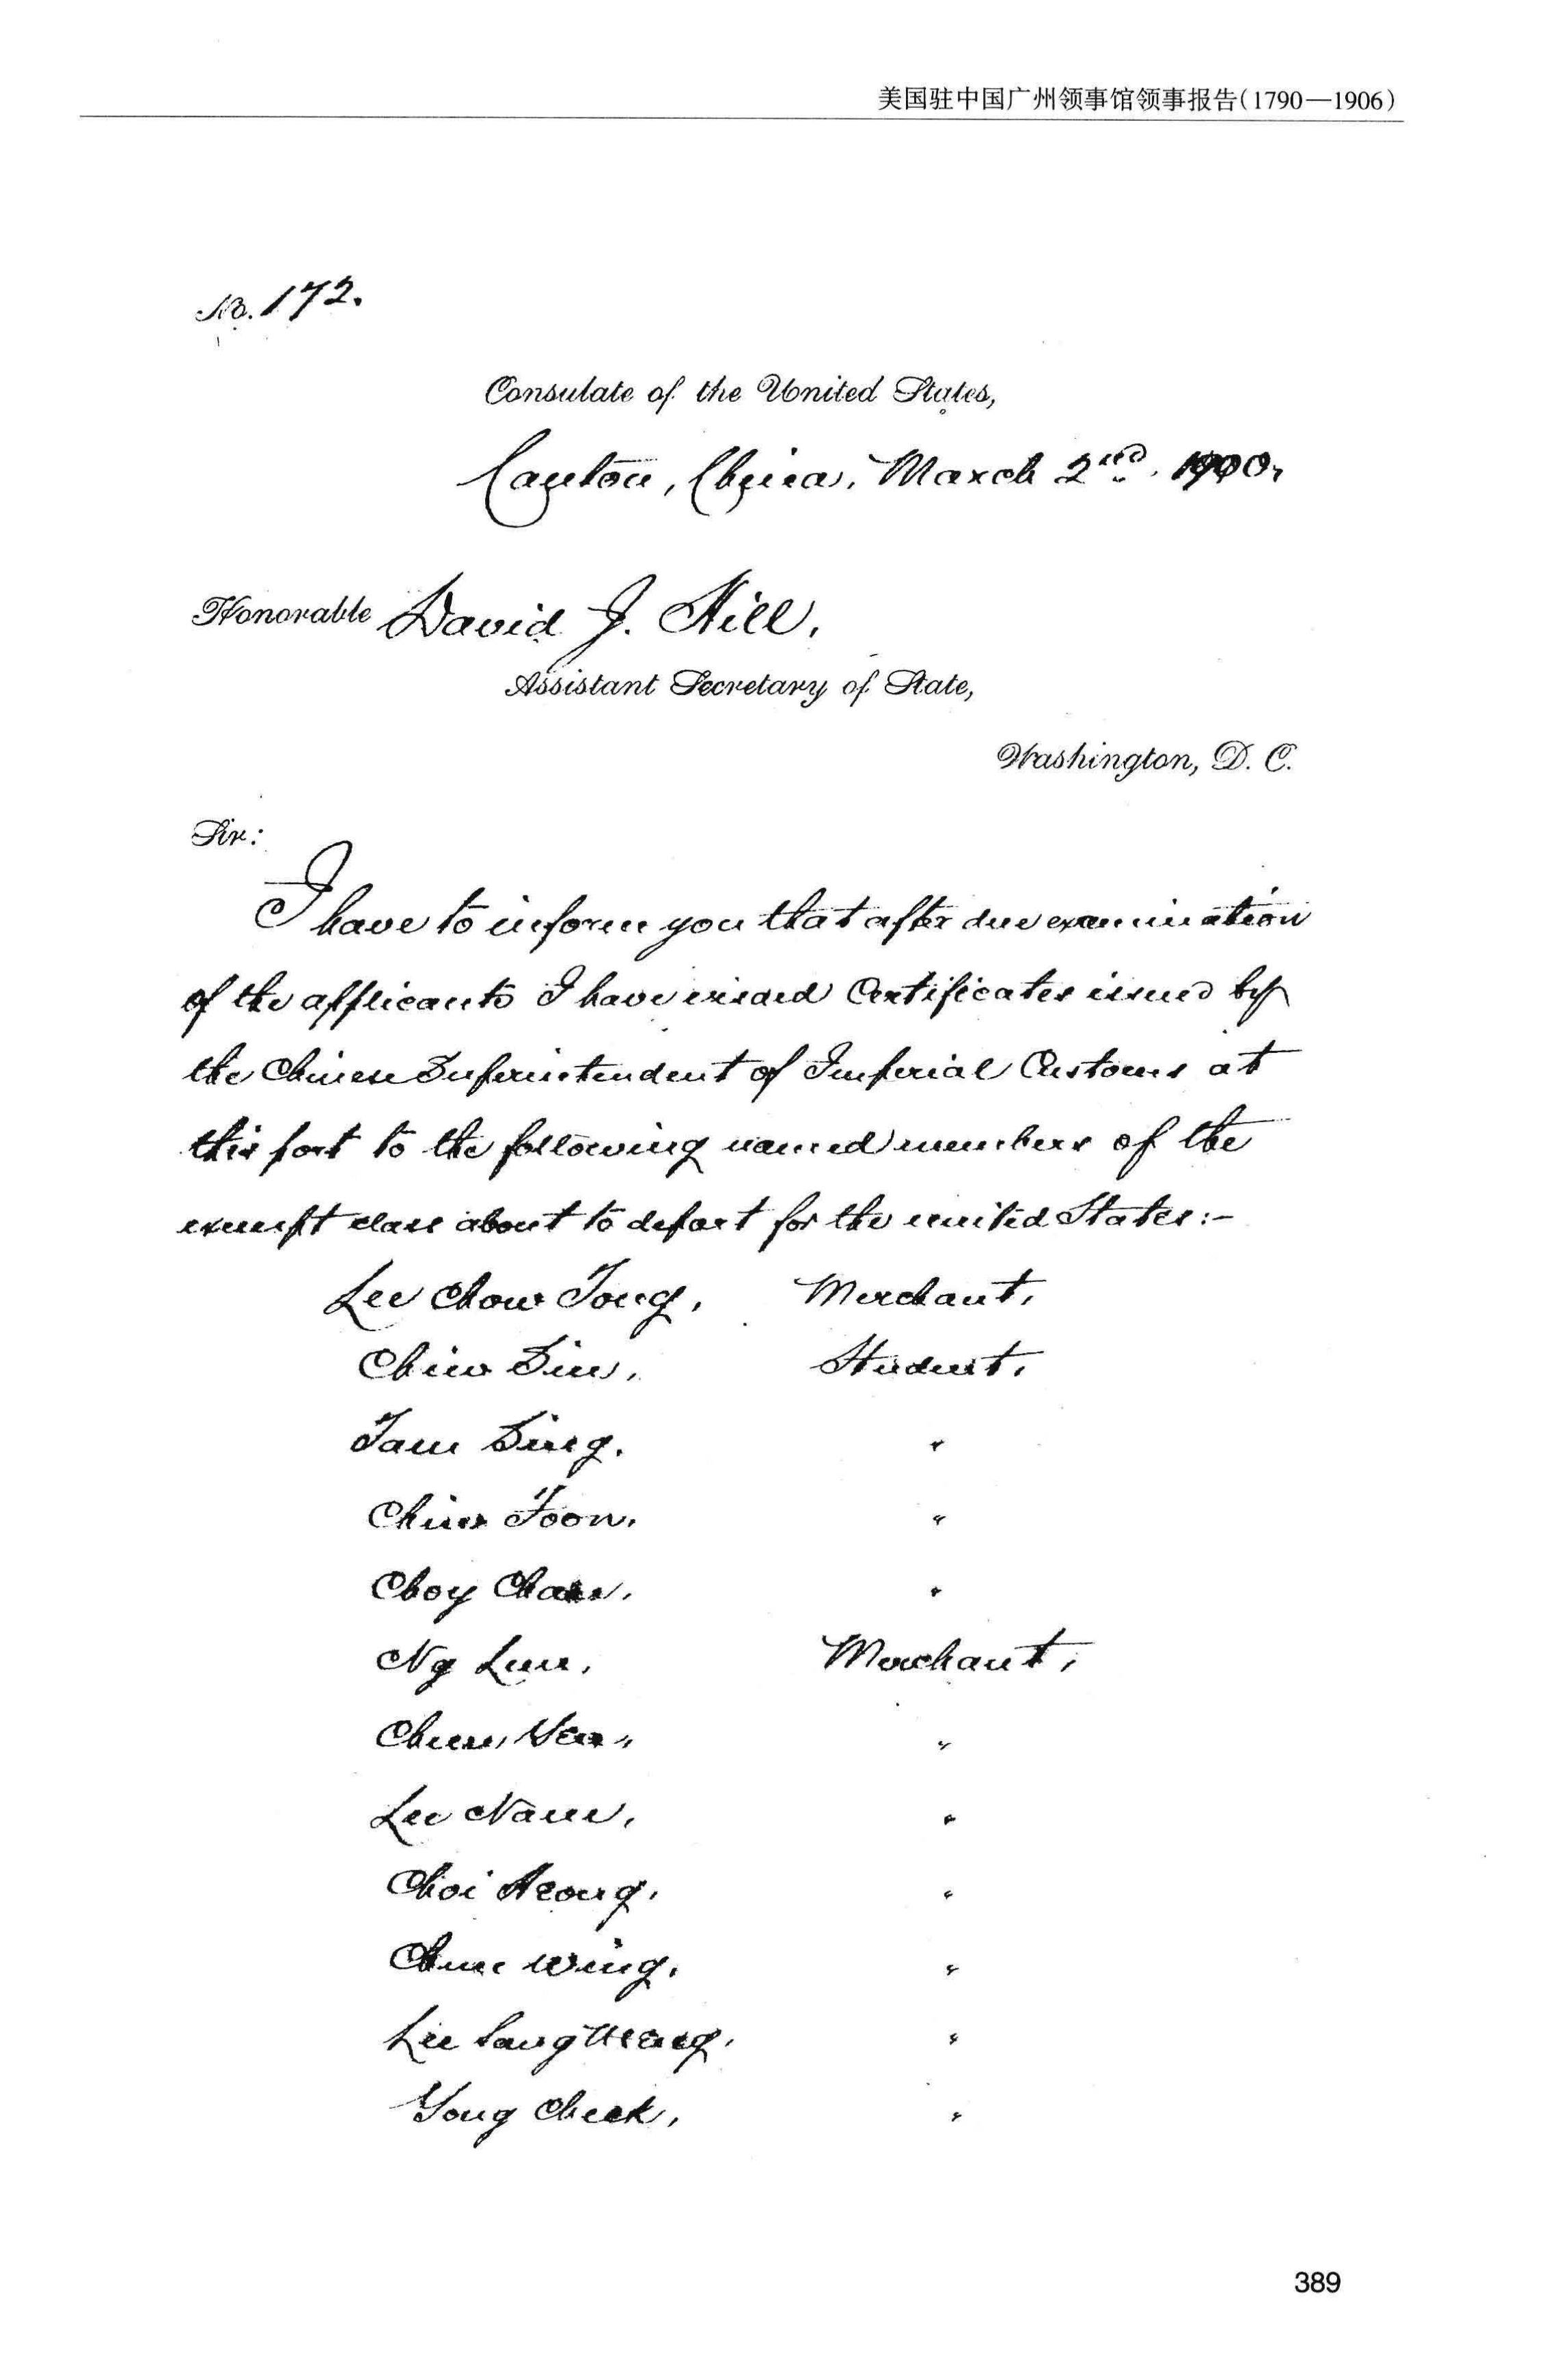 美国驻中国广州领事馆领事报告(1790—1906)
No. 172.
Consulate of the United States,
Canton, China, March 2nd. 1900,
Honorable David J. Hill,
Assistant Secretary of State,
Washington, D. C.
Sir:
I have to inform you that after due examination
of the applicants I have visaed Certificates issued by
the Chinese Superintendent of Imperial Customs at
this port to the following named members of the
exempt class about to depart for the united States:-
Lee Chow Tong, Merchant,
Chiu Siu, Student,
Tam Sing. "
Toon, "
Choy Chan, "
Ng Lun, Merchant,
Chun "
Lee Nam, "
Choi "
Chun Wing, "
Lee "
Yong Cheek, "
389